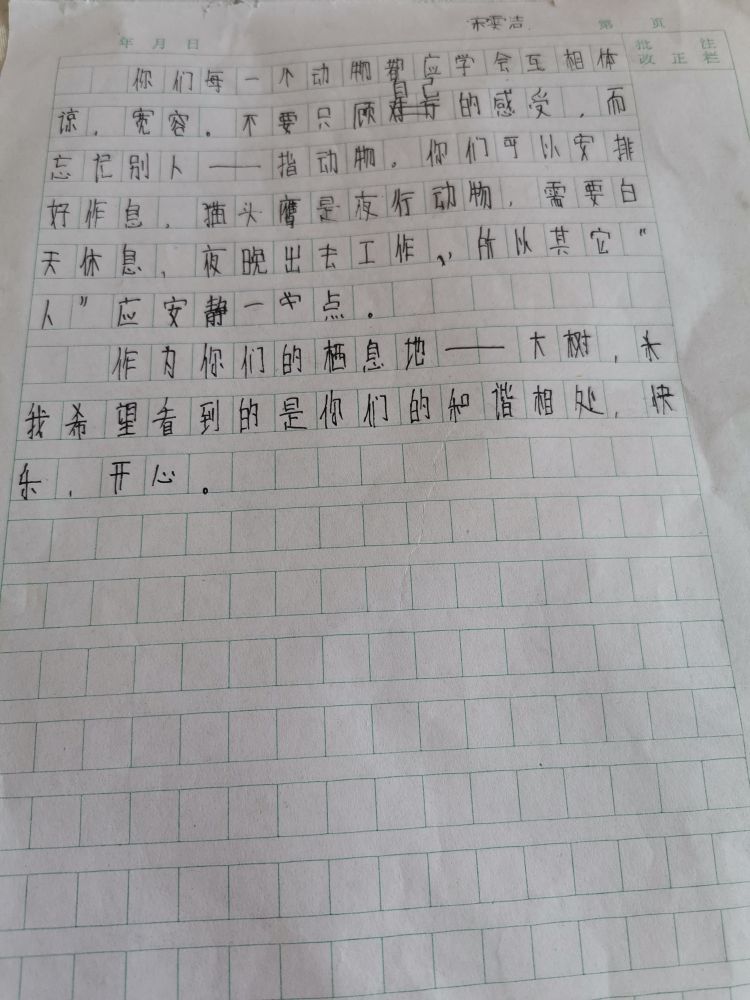 宋雯洁 第 页
年 月 日
批 注
改 正 栏
你们每一个动物都应学会互相体
谅,宽容。不要只顾自己的感受,而
忘记别人——指动物。你们可以安排
好作息,猫头鹰是夜行动物,需要白
天休息,夜晚出去工作,所以其它“
人”应安静一点。
作为你们的栖息地——大树,
我希望看到的是你们的和谐相处,快
乐,开心。